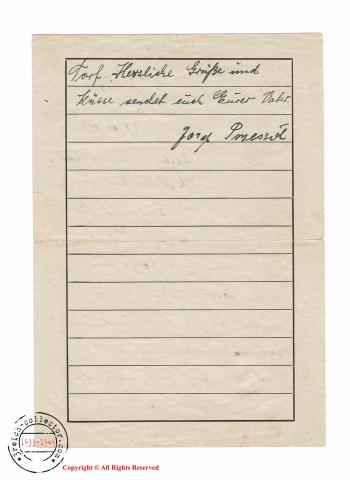 Torf. Herzliche Grüße und
Küsse sendet euch Eurer Vater.
Josef
3reich-collector.com
1933-1945
Copyright © All Rights Reserved